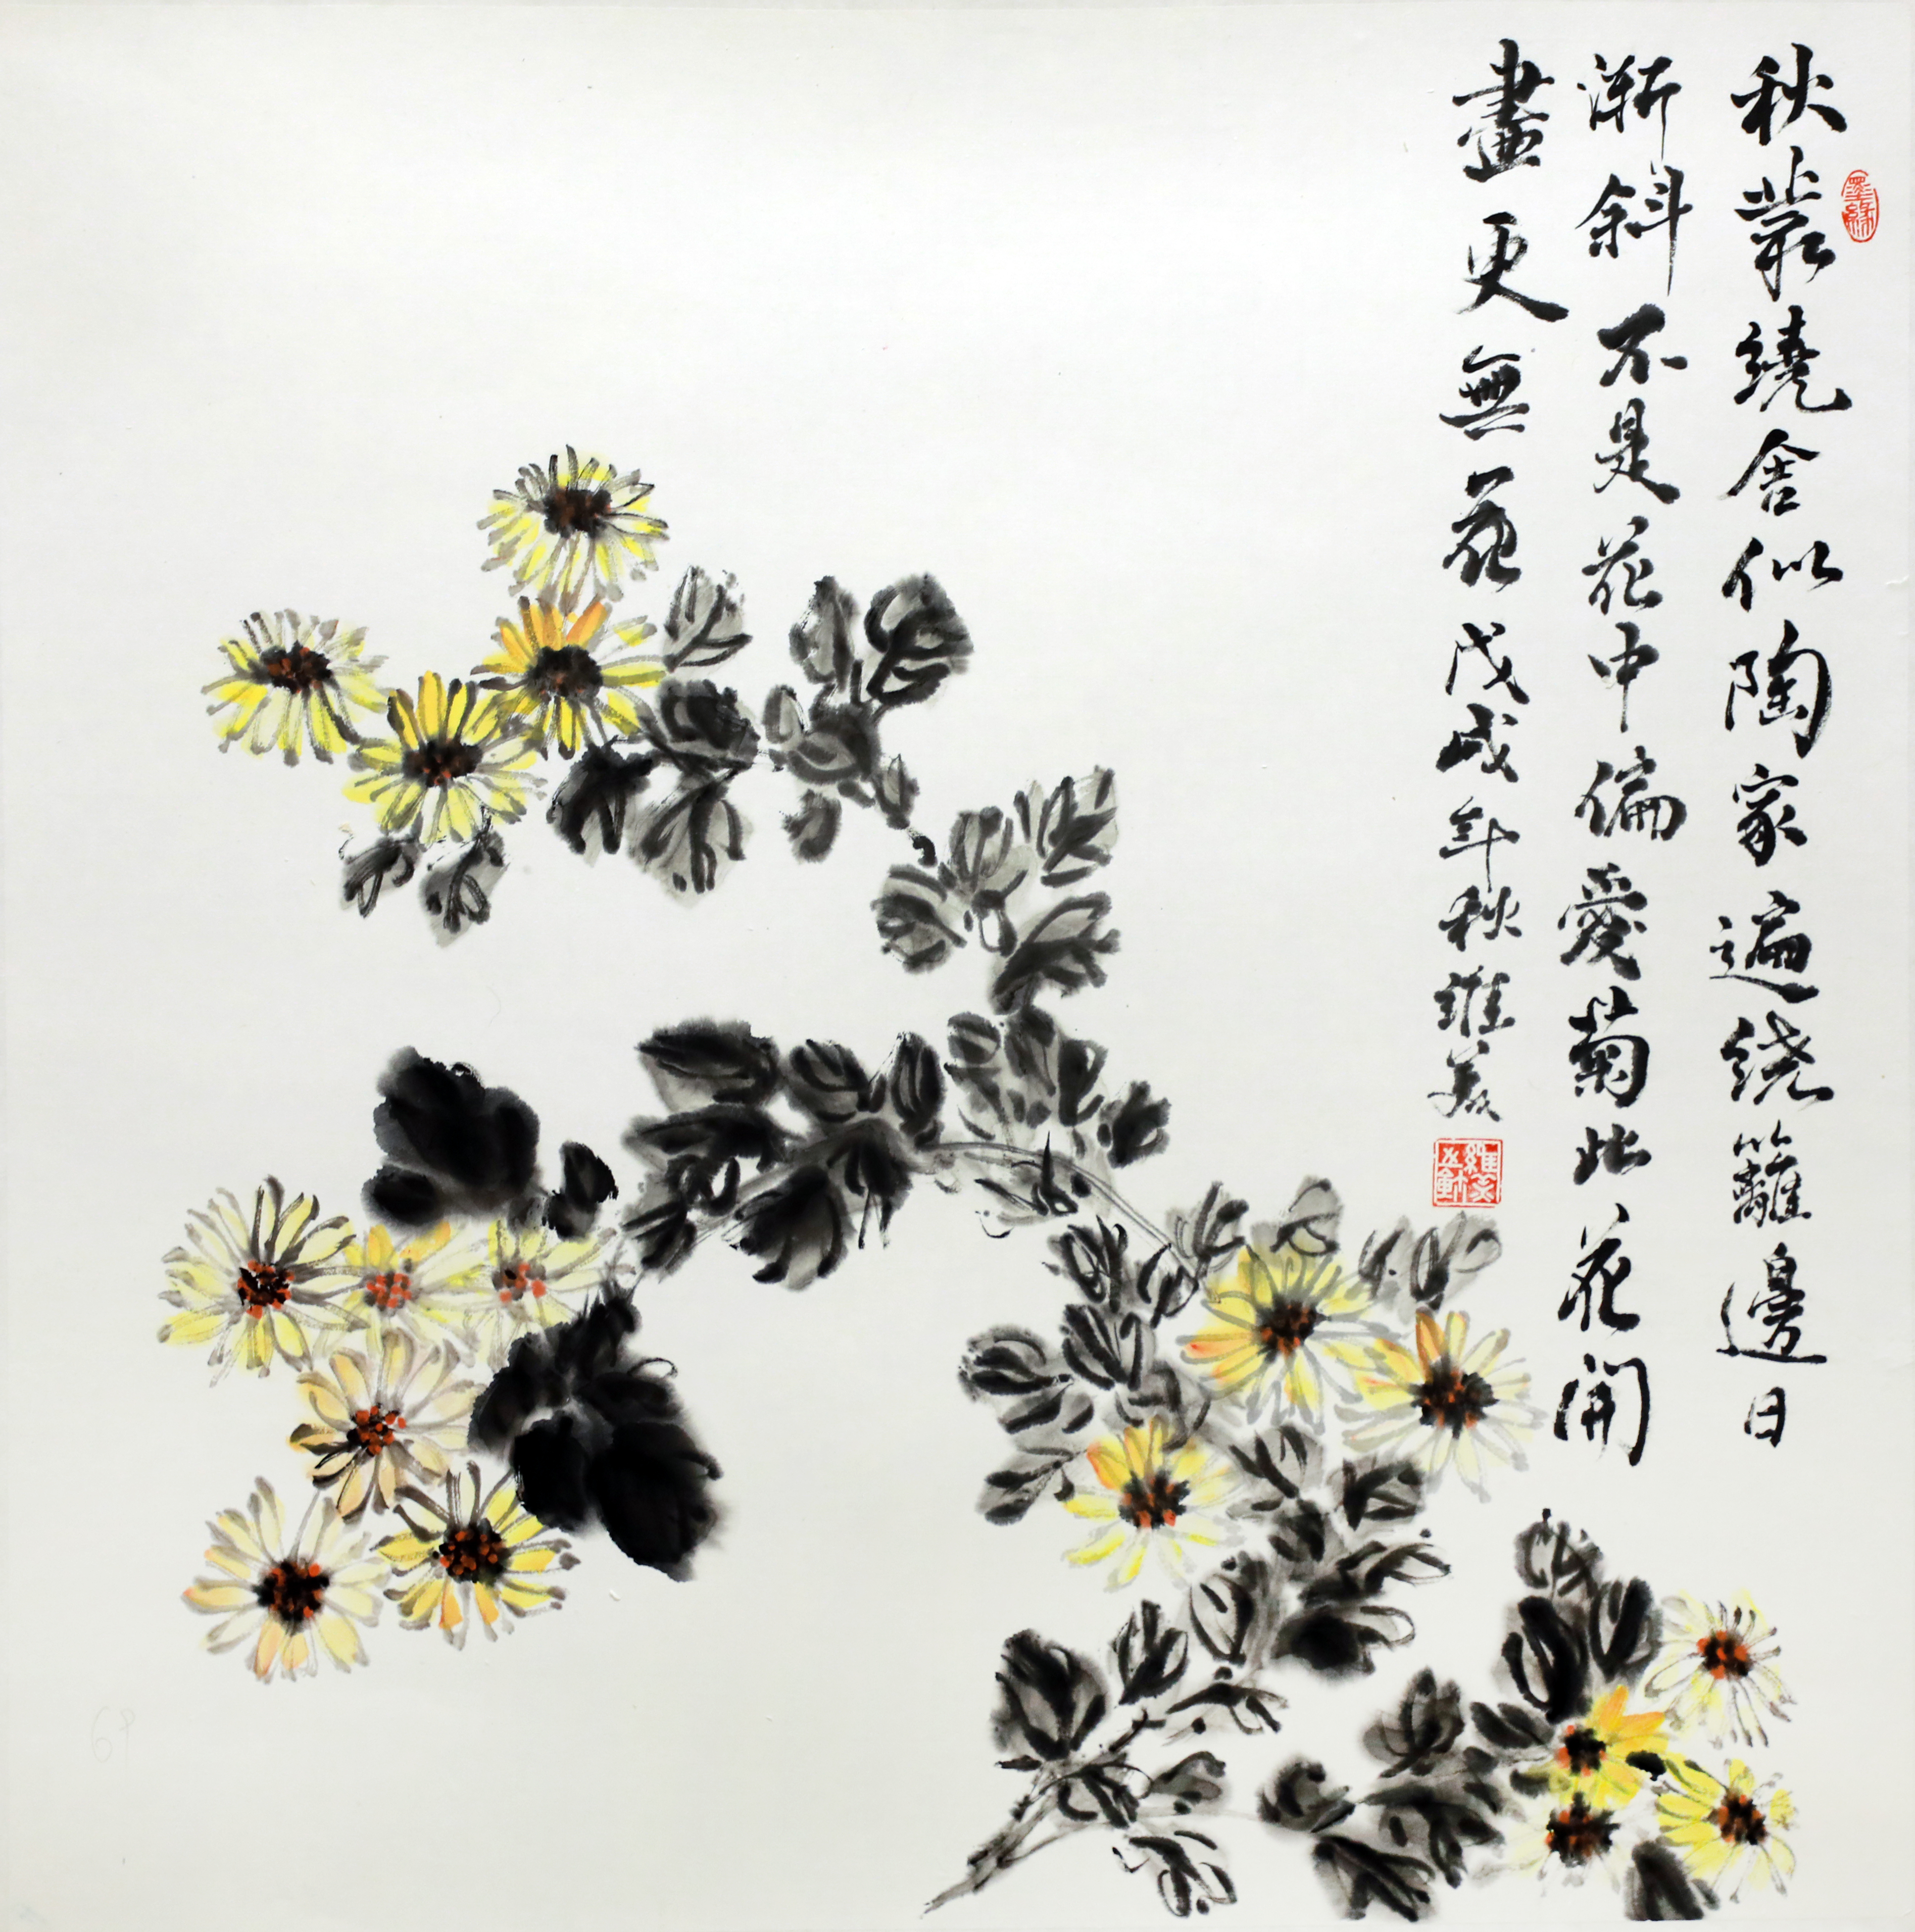 秋叢繞舍似陶家遍绕籬邊日
漸斜不是花中偏愛菊此花開
盡更無花戊戌年秋維美
墨緣
69